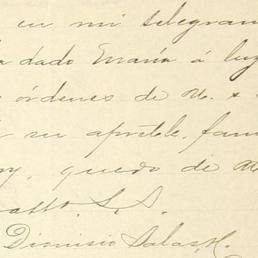 en mi telegram
dado María á luz
órdenes de U. s
su apreble. fam
quedo de
atto. S. S.
Dionisio Salas, H.